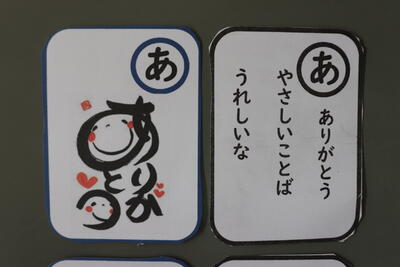 あ
ありがとう
あ
ありがとう
やさしいことば
うれしいな